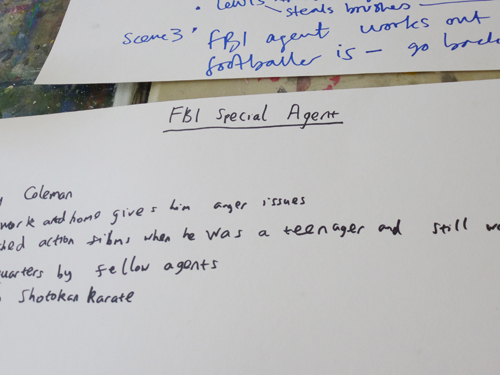 steals brushes
Scene 3 FBI agent works out
footballer is - go
FBI Special Agent
Coleman
work and home gives him anger issues
action films when he was a teenager and still
by fellow agents
Shotokan Karate